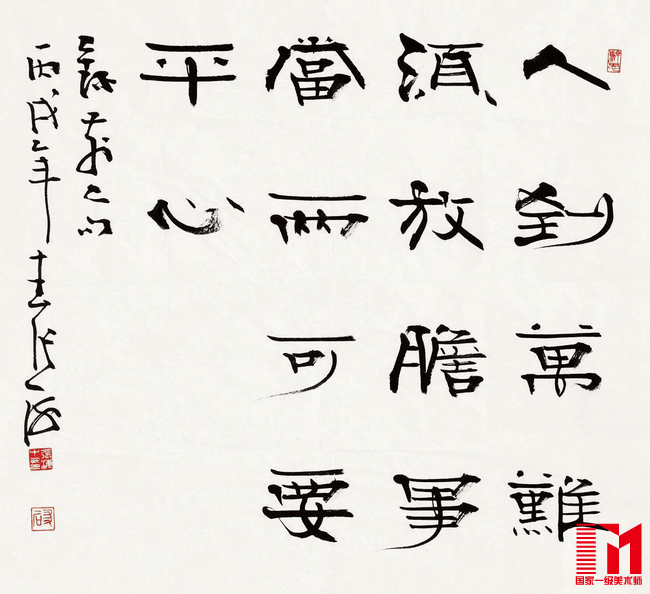 人到萬難
須放膽事
當兩可要
平心
丙戌年
國家一级美术师